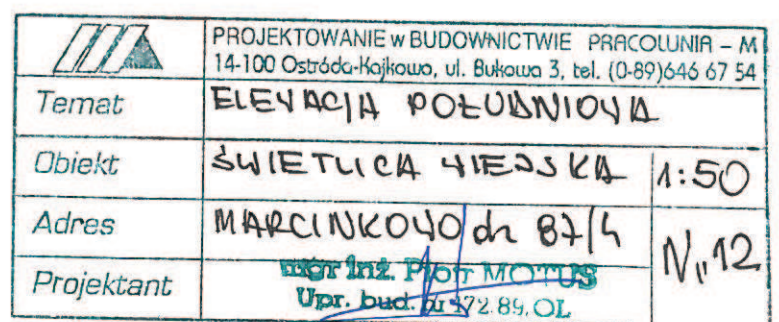 PROJEKTOWANIE w BUDOWNICTWIE PRACOLUNIA - M
14-100 Ostróda-Kajkowo, ul. Bukowa 3, tel. (0-89)646 67 54
Temat ELEWACJA POŁUDNIOWA
Obiekt ŚWIETLICA WIEJSKA 1:50
Adres MARCINKOWO dz 87/4
Nr 12
Projektant mgr inż. Piotr MOTUS
Upr. bud. nr 172.89.OL